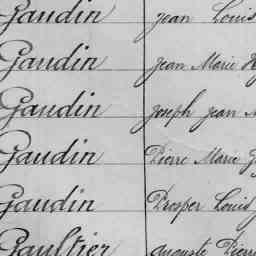 Gaudin Jean Louis
Gaudin Jean Marie
Gaudin Joseph Jean
Gaudin Pierre Marie
Gaudin Prosper Louis
Gaultier Auguste Pierre